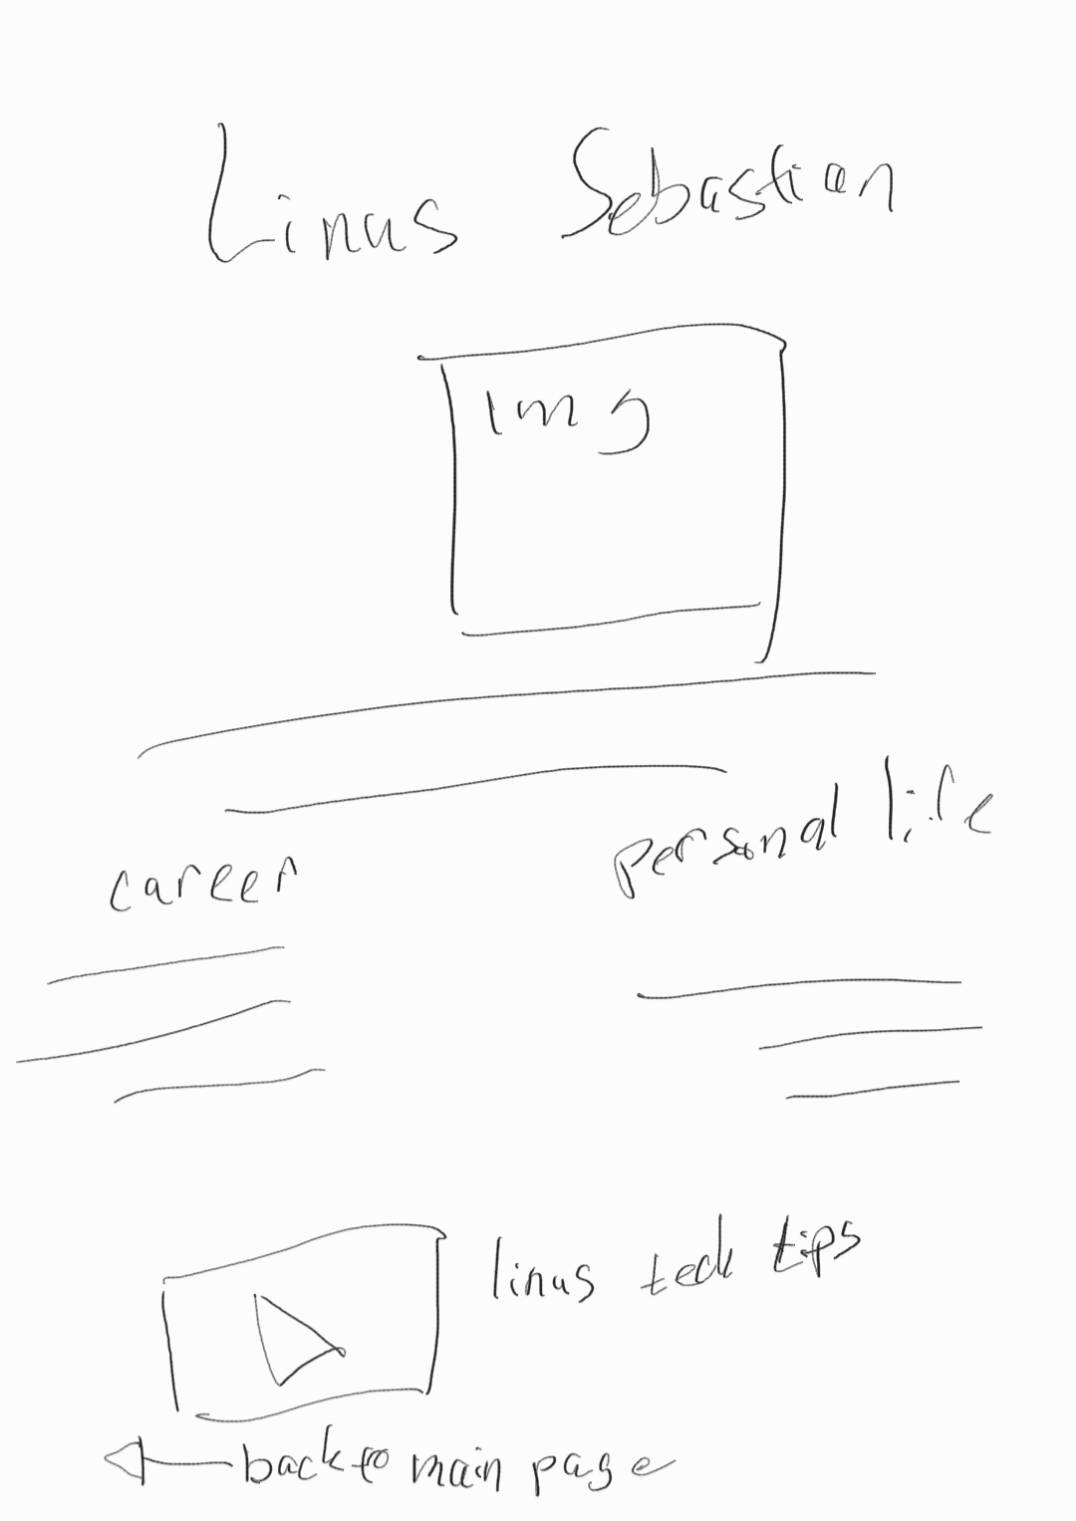 Linus Sebastian
Img
career
personal life
linus tech tips
back to main page